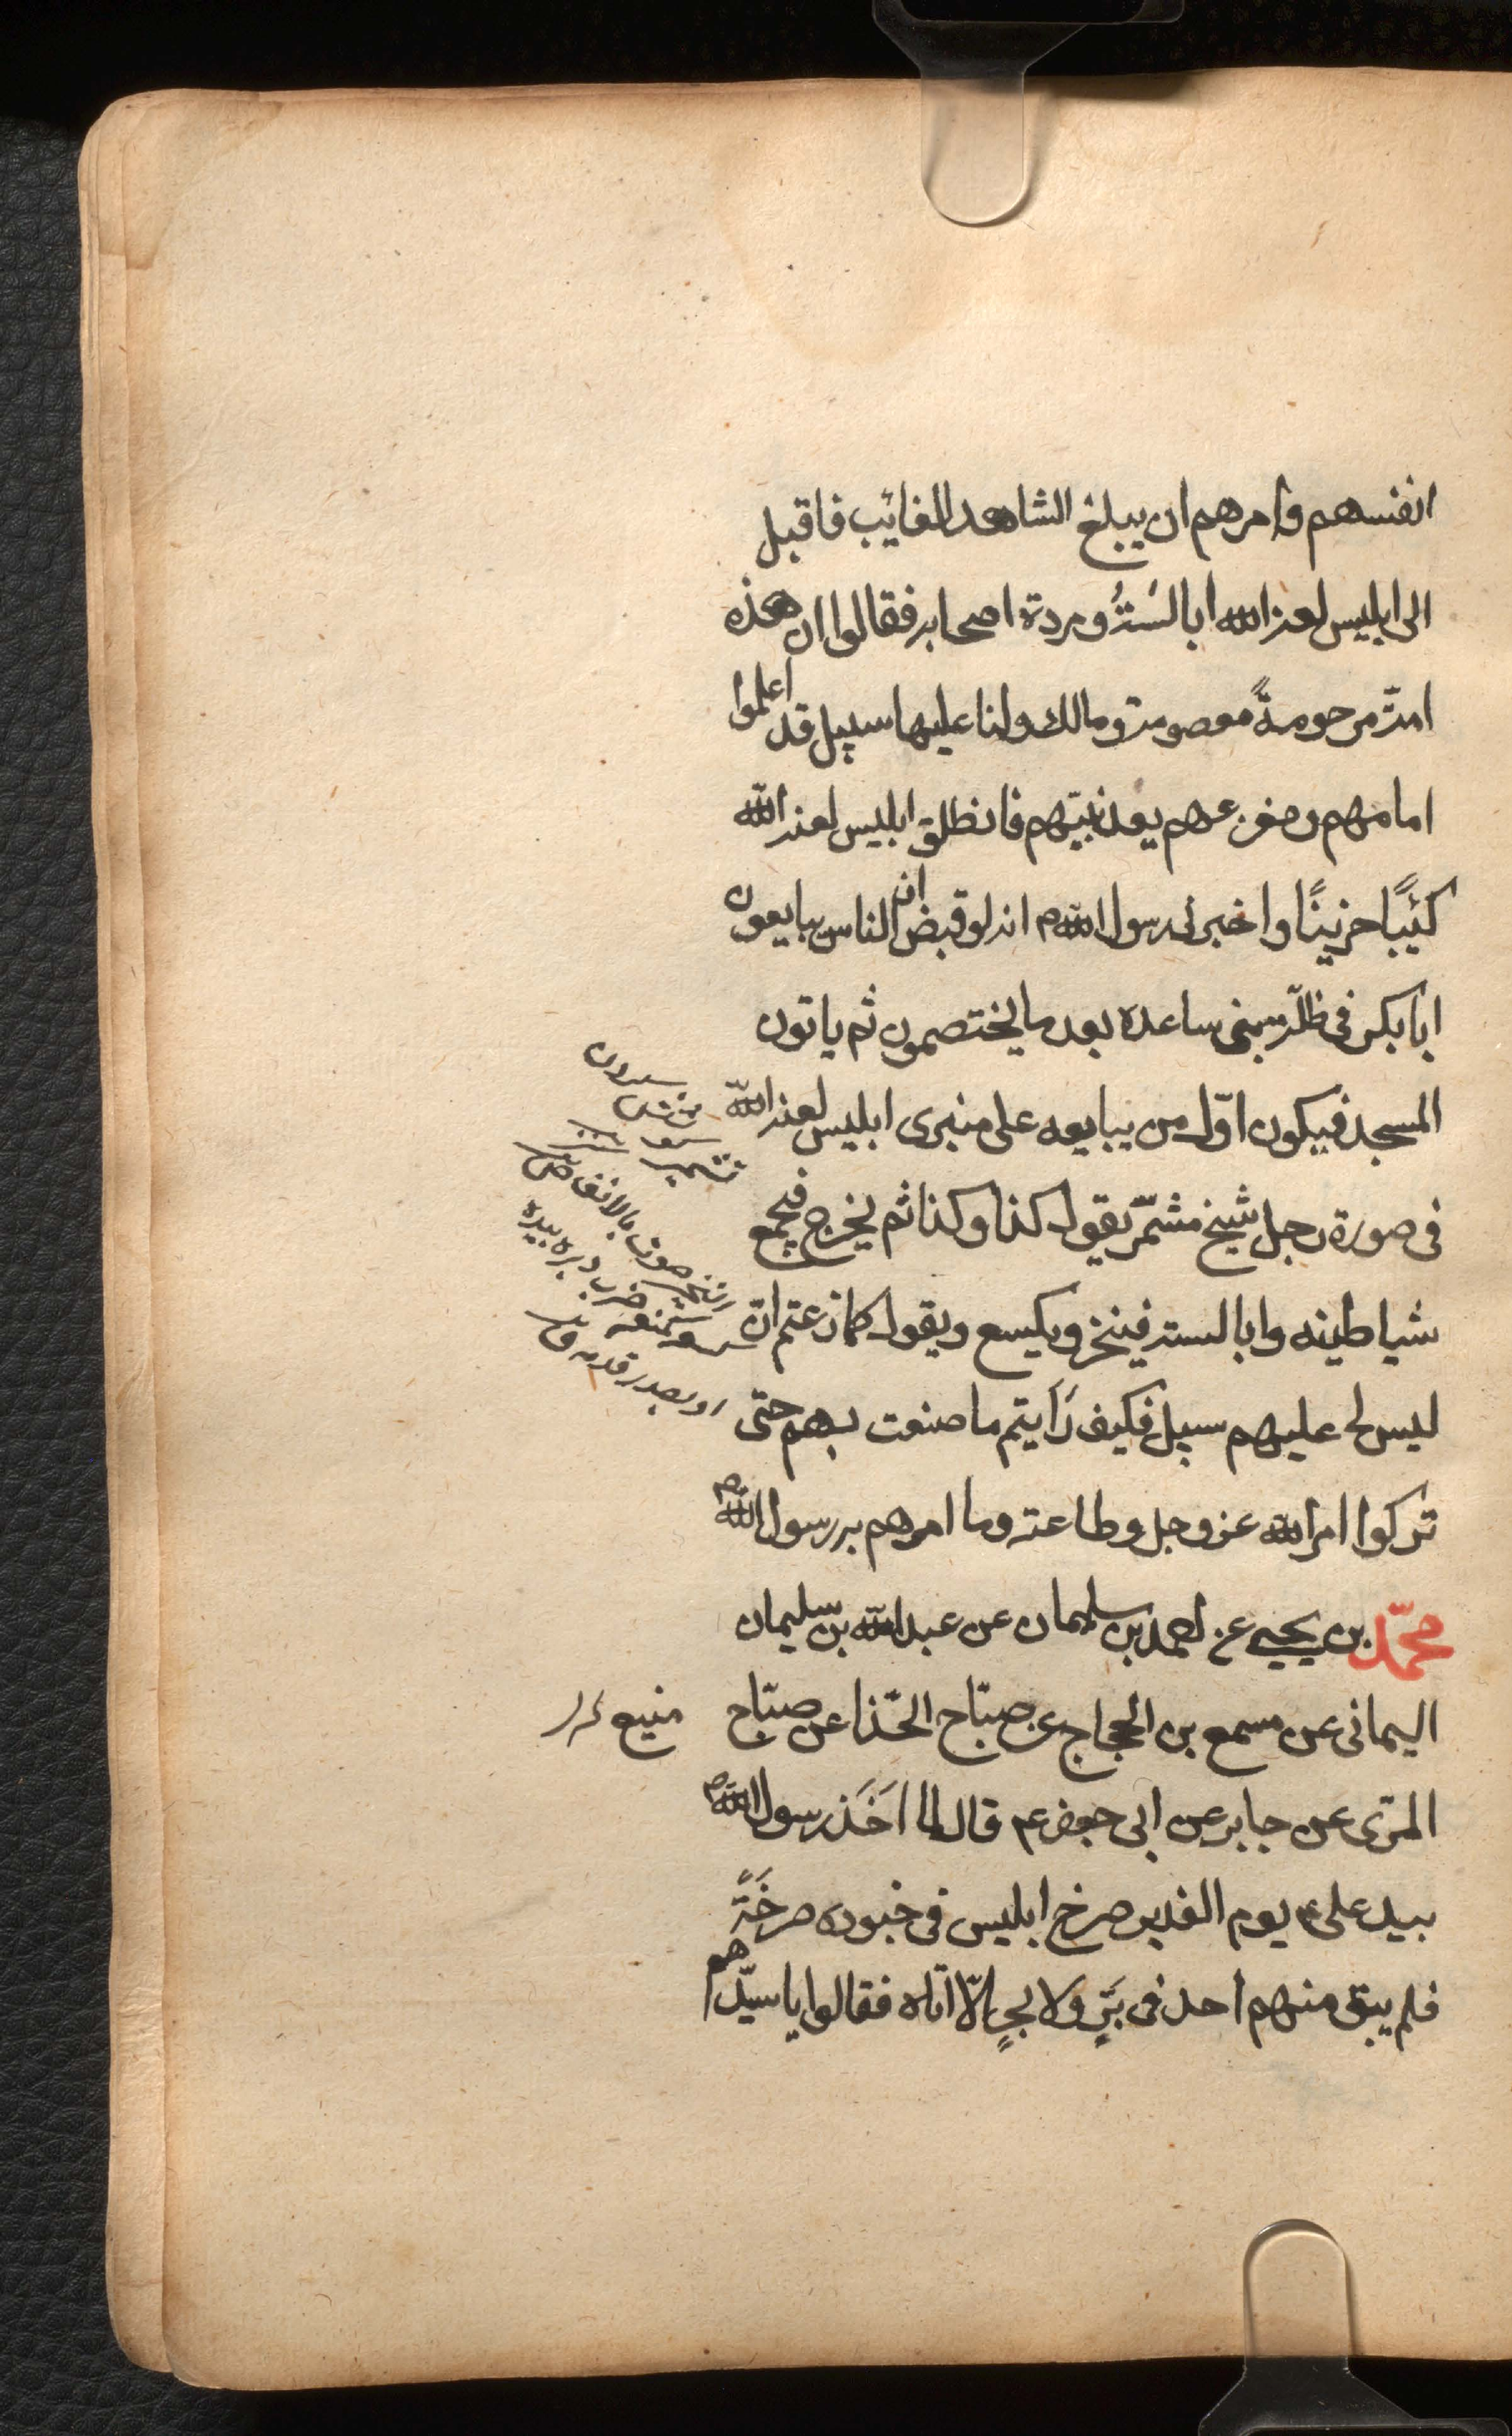 انفسهم وامرهم ان يبلغ الشاهد الغائب فاقبل
الى ابليس لعنه الله ابالسُتُه ومردة اصحابه فقالوا ان هذه
امّة مرحومةً معصومة ومالك ولنا عليها سبيل قد اعلموا
امامهم ومفزعهم بعد نبيّهم فانطلق ابليس لعنه الله
كئيبًا حزينًا واخبرنى رسول الله ص انه لو قبض ان الناس يبايعون
ابا بكر فى ظلّة بنى ساعدة بعد ما يختصمون ثم ياتون
المسجد فيكون اوّل من يبايعه على منبرى ابليس لعنه الله
فى صورة رجل شيخ مشمّر يقول كذا وكذا ثم يخرج فيجمع
شياطينه وابالسته فينخر ويكسع ويقول كلا زعمتم انّ
ليس لى عليهم سبيل فكيف رَأيتم ما صنعت بهم حتى
تركوا امر الله عز وجل وطاعته وما امرهم به رسول الله ص
محمّد بن يحيى عن احمد بن سليمان عن عبد الله بن سليمان
اليمانى عن مسمع بن الحجاج عن صبّاح الحّذا عن صبّاح
المزى عن جابر عن ابى جعفر عم قال لما اَخَذ رسول الله ص
بيد على ع يوم الغدير صرخ ابليس فى جنوده صرخَةً
فلم يبق منهم احد فى بَرٍّ ولا بحرٍ الّا اتاه فقالوا يا سيّدهم
تشمير
النخير صوت بالانف ص
كسعه كمنعه ضرب دبره بيده
او بصدر قدمه ق
منيع